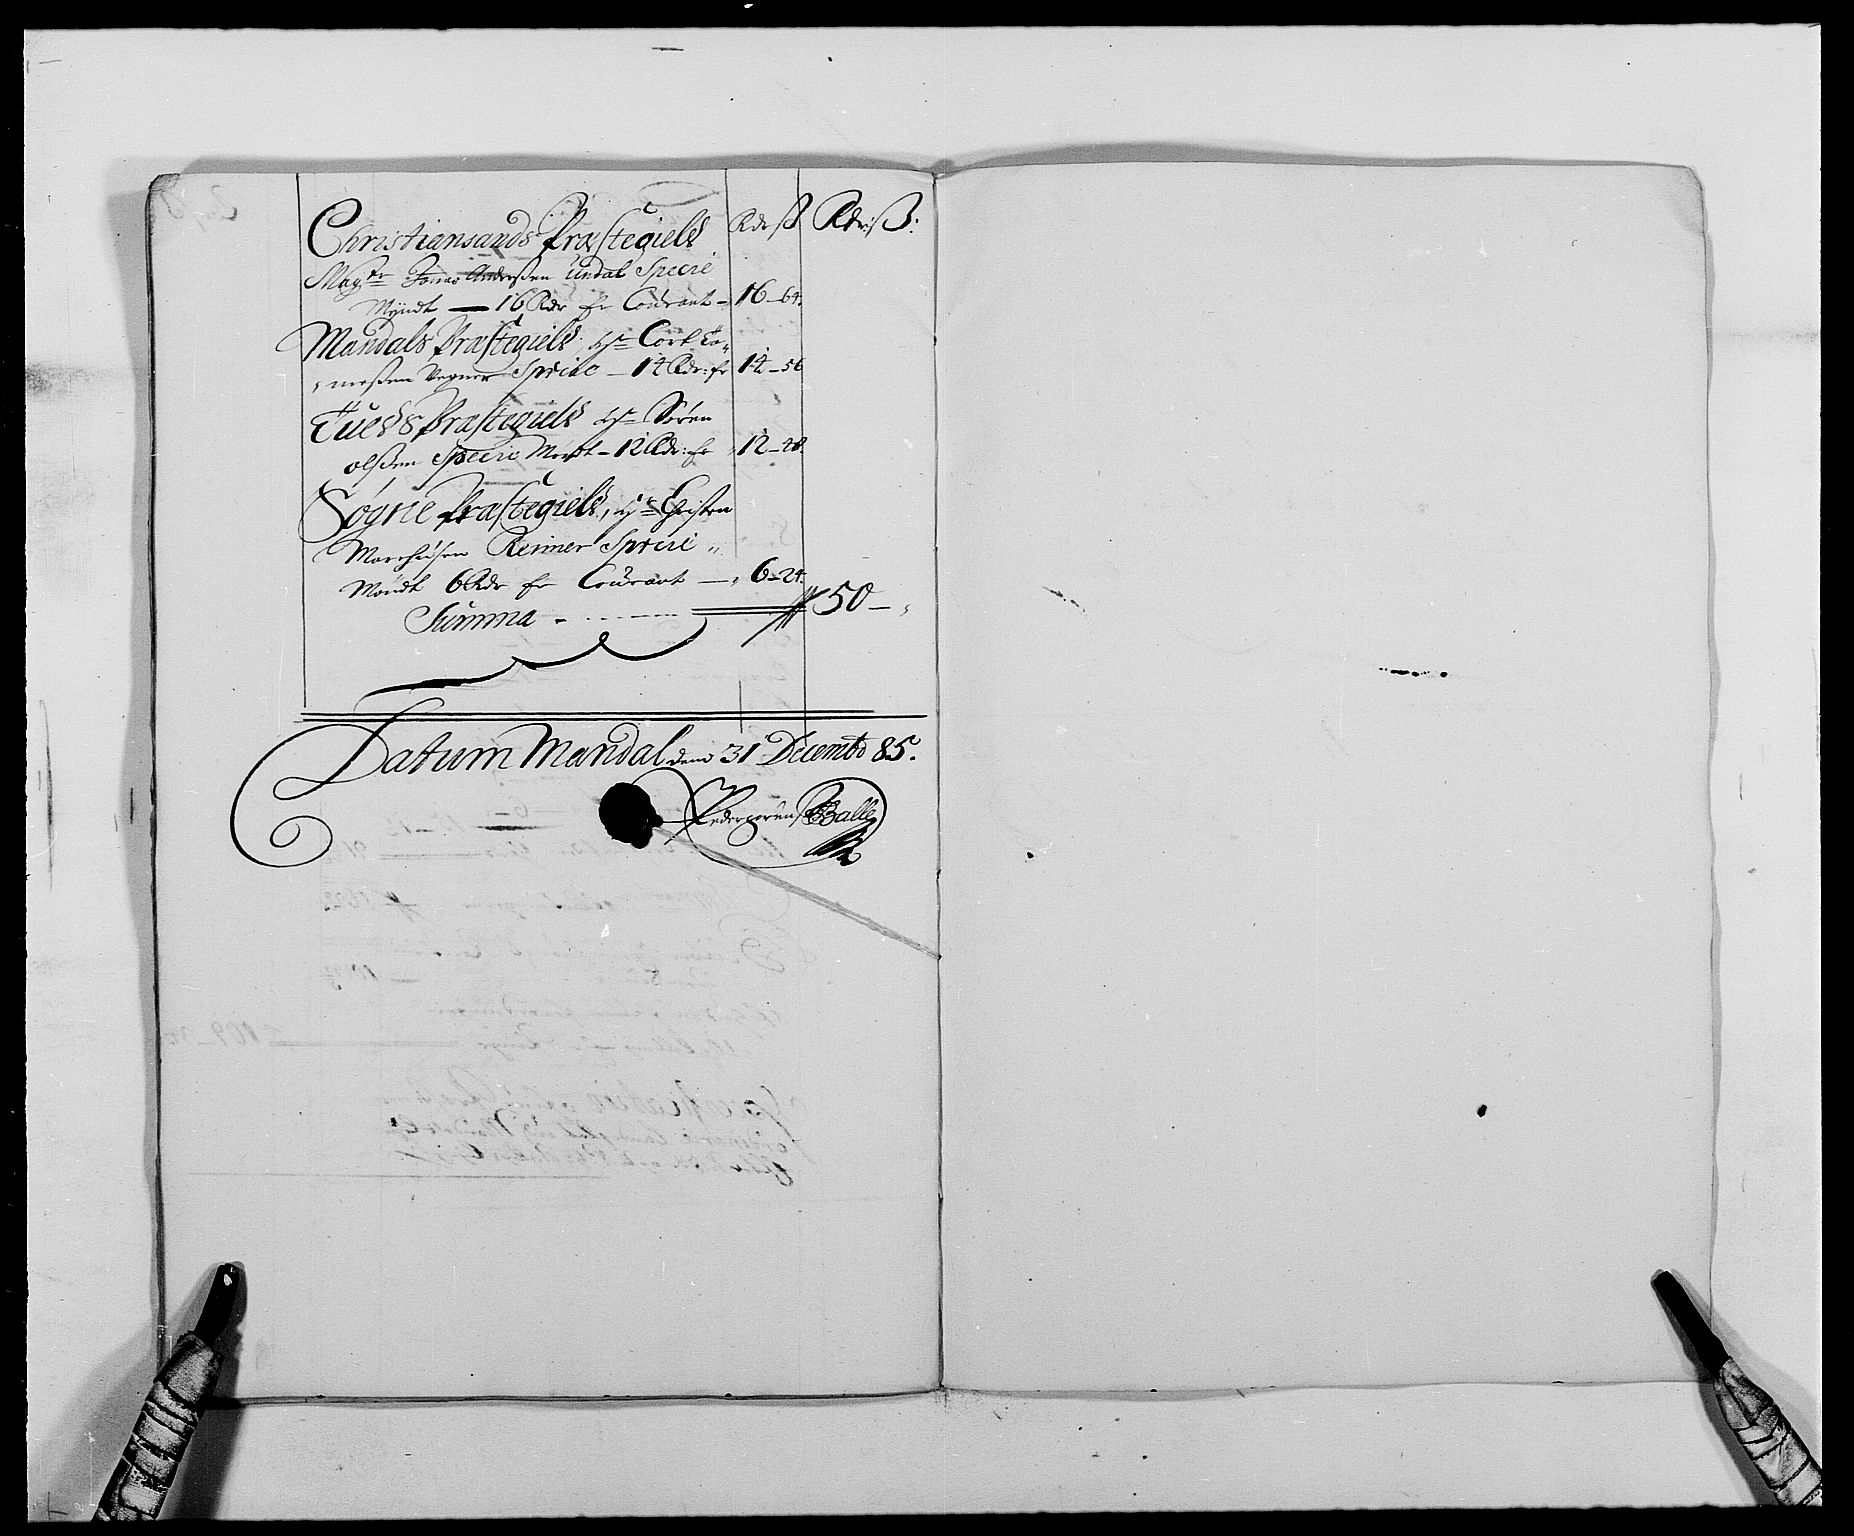 Rdr ß Rdr: ß:
Christiansands Præstegield
Mag:tr Jonas Andersßen Undal Specie
Myndt — 16 Rdr er Courant — 16 – 64:
Mandals Præstegield, Hr Cort To„
„meßen Wegner Specie — 14 Rdr: er 14 – 56
Tueds Præstegield Hr Søren
olßen Specie Myndt – 12 Rdr: er 12 – 48.
Søgne Præstegield, Hr Christen
Reimer Specie „
Myndt 6 Rdr er Courant — 6 – 24.
Summa 50 –
Datum Mandal dend 31 Decembr 85.
Peder Balle